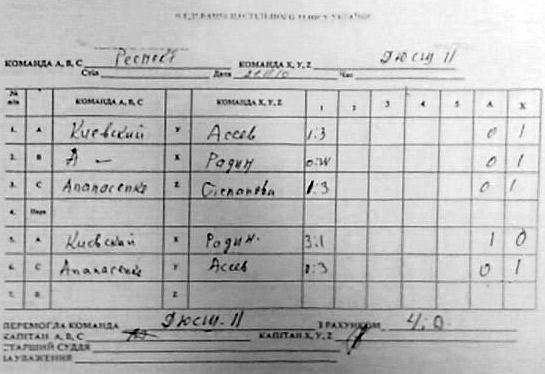 ФЕДЕРАЦІЯ НАСТІЛЬНОГО ТЕНІСУ УКРАЇНИ
КОМАНДА А, В, С Респект КОМАНДА X, Y, Z Дюсш 11
Стіл Дата Час
№ п/п КОМАНДА А, В, С КОМАНДА X, Y, Z 1 2 3 4 5 А X
1. А Киевский Y Ассев 1:3 0 1
2. В А — X Радин 0:W 0 1
3. С Апанасенко Z Степанова 1:3 0 1
4. Пара
5. А Киевский X Радин 3:1 1 0
6. С Апанасенко Y Ассев 0:3 0 1
7. В Z
ПЕРЕМОГЛА КОМАНДА Дюсш. 11 З РАХУНКОМ 4:0.
КАПІТАН А, В, С КАПІТАН X, Y, Z
СТАРШИЙ СУДДЯ
ЗАУВАЖЕННЯ